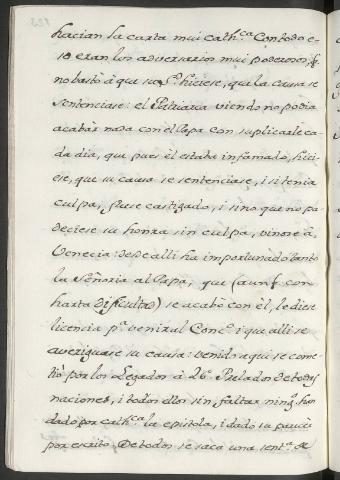 hacian la carta mui cath.ca Con todo e-
so eran los adversarios mui poderosos, q.
no bastò à que su S.d hiciese, que la causa se
sentenciase: el Patriarca viendo no podia
acabar nada con el Papa con suplicarle ca-
da dia, que pues el estaba infamado, hici-
ese, que su causa se sentenciase, i si tenia
culpa, fuese castigado, i sino que no pa-
deciese su honra sin culpa, vinose à
Venecia: desde alli ha importunado tanto
la Señoria al Papa, que (aunq. con
harta dificultad) se acabò con èl, le diese
licencia p.a venir al Conc.o i que alli se
averiguase su causa: venido aqui se come-
tiò por los Legados à 26 Prelados de todas
naciones, i todos ellos sin faltar ning.o han
dado por cath.ca la epistola, i dado su parecer
por escrito. De todos se saca una sent.a de